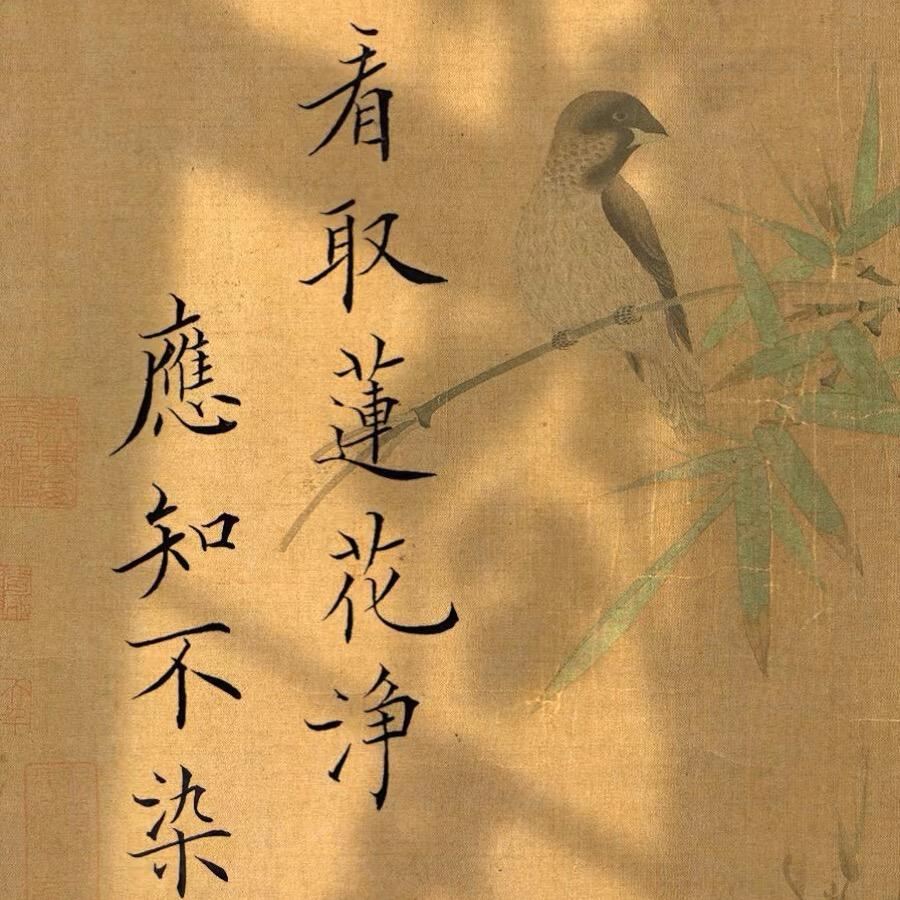 看取蓮花净
應知不染